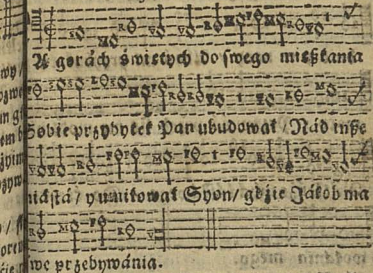 A gorách świętych do swego mieszkania
Sobie przybytek Pan ubudował / Nád insze
miástá / y umiłował Syon / gdzie Jákob ma
swe przebywánia.